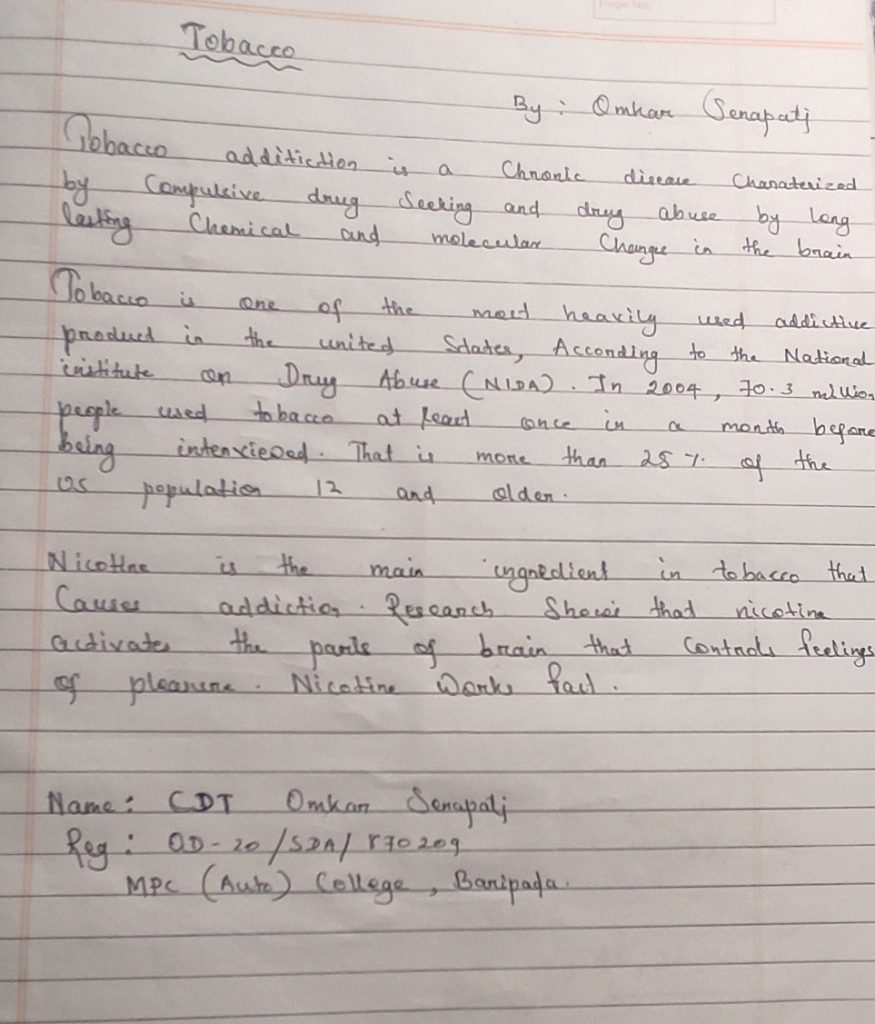 Page No.
Tobacco
By : Omkar Senapati
Tobacco additiction is a Chronic disease Charaterized
by Compulsive drug Seeking and drug abuse by long
lasting Chemical and molecular Changes in the brain
Tobacco is one of the most heavily used addictive
product in the united States, According to the National
institute on Drug Abuse (NIDA). In 2004, 70.3 million
people used tobacco at least once in a month before
being interviewed. That is more than 28 % of the
US population 12 and older.
Nicotine is the main ingredient in tobacco that
Causes addiction. Research Shows that nicotine
activates the parts of brain that Controls feelings
of pleasure. Nicotine Works fast.
Name : CDT Omkar Senapati
Reg : OD-20/SDA/870209
MPC (Auto) College, Baripada.